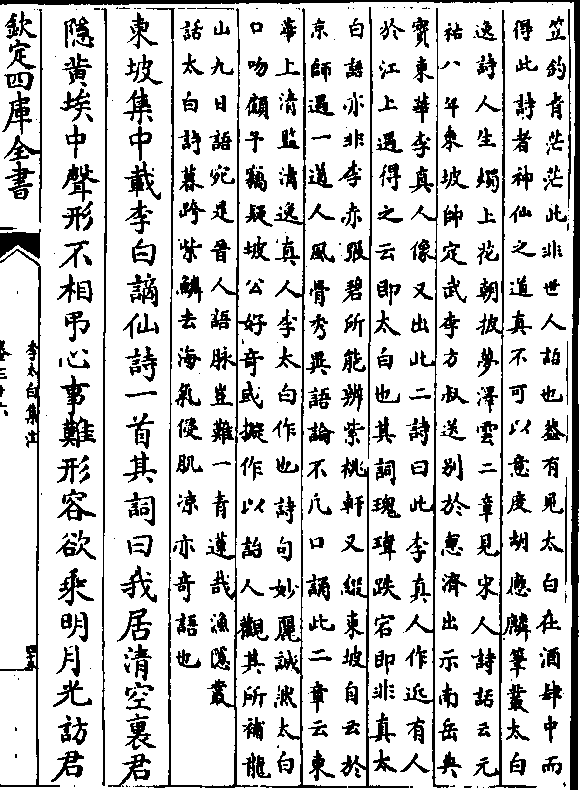 笠釣育茫茫此非世人語也蓋有見太白在酒肆中而
得此詩者神仙之道真不可以意度胡應麟筆叢太白
逸詩人生燭上花朝披夢澤雲二章見宋人詩話云元
祐八年東坡帥定武李方叔送别於惠濟出示南岳典
寳東華李真人像又出此二詩曰此李真人作近有人
於江上遇得之云即太白也其詞瑰瑋跌宕即非真太
白語亦非李赤張碧所能辦紫桃軒又綴東坡自云於
京師遇一道人風骨秀異語論不凡口誦此二章云東
華上清監清逸真人李太白作也詩句妙麗誠溯太白
口吻顧予竊疑坡公好奇或擬作以詒人觀其所補龍
山九日語宛是晉人語脉豈難一青蓮哉漁隱叢
話太白詩暮跨紫鱗去海氣侵肌凉亦奇語也
東坡集中載李白謫仙詩一首其詞曰我居清空裏君
隱黄埃中聲形不相弔心事難形容欲乘明月光訪君
欽定四庫全書
李太白集注
卷三十六